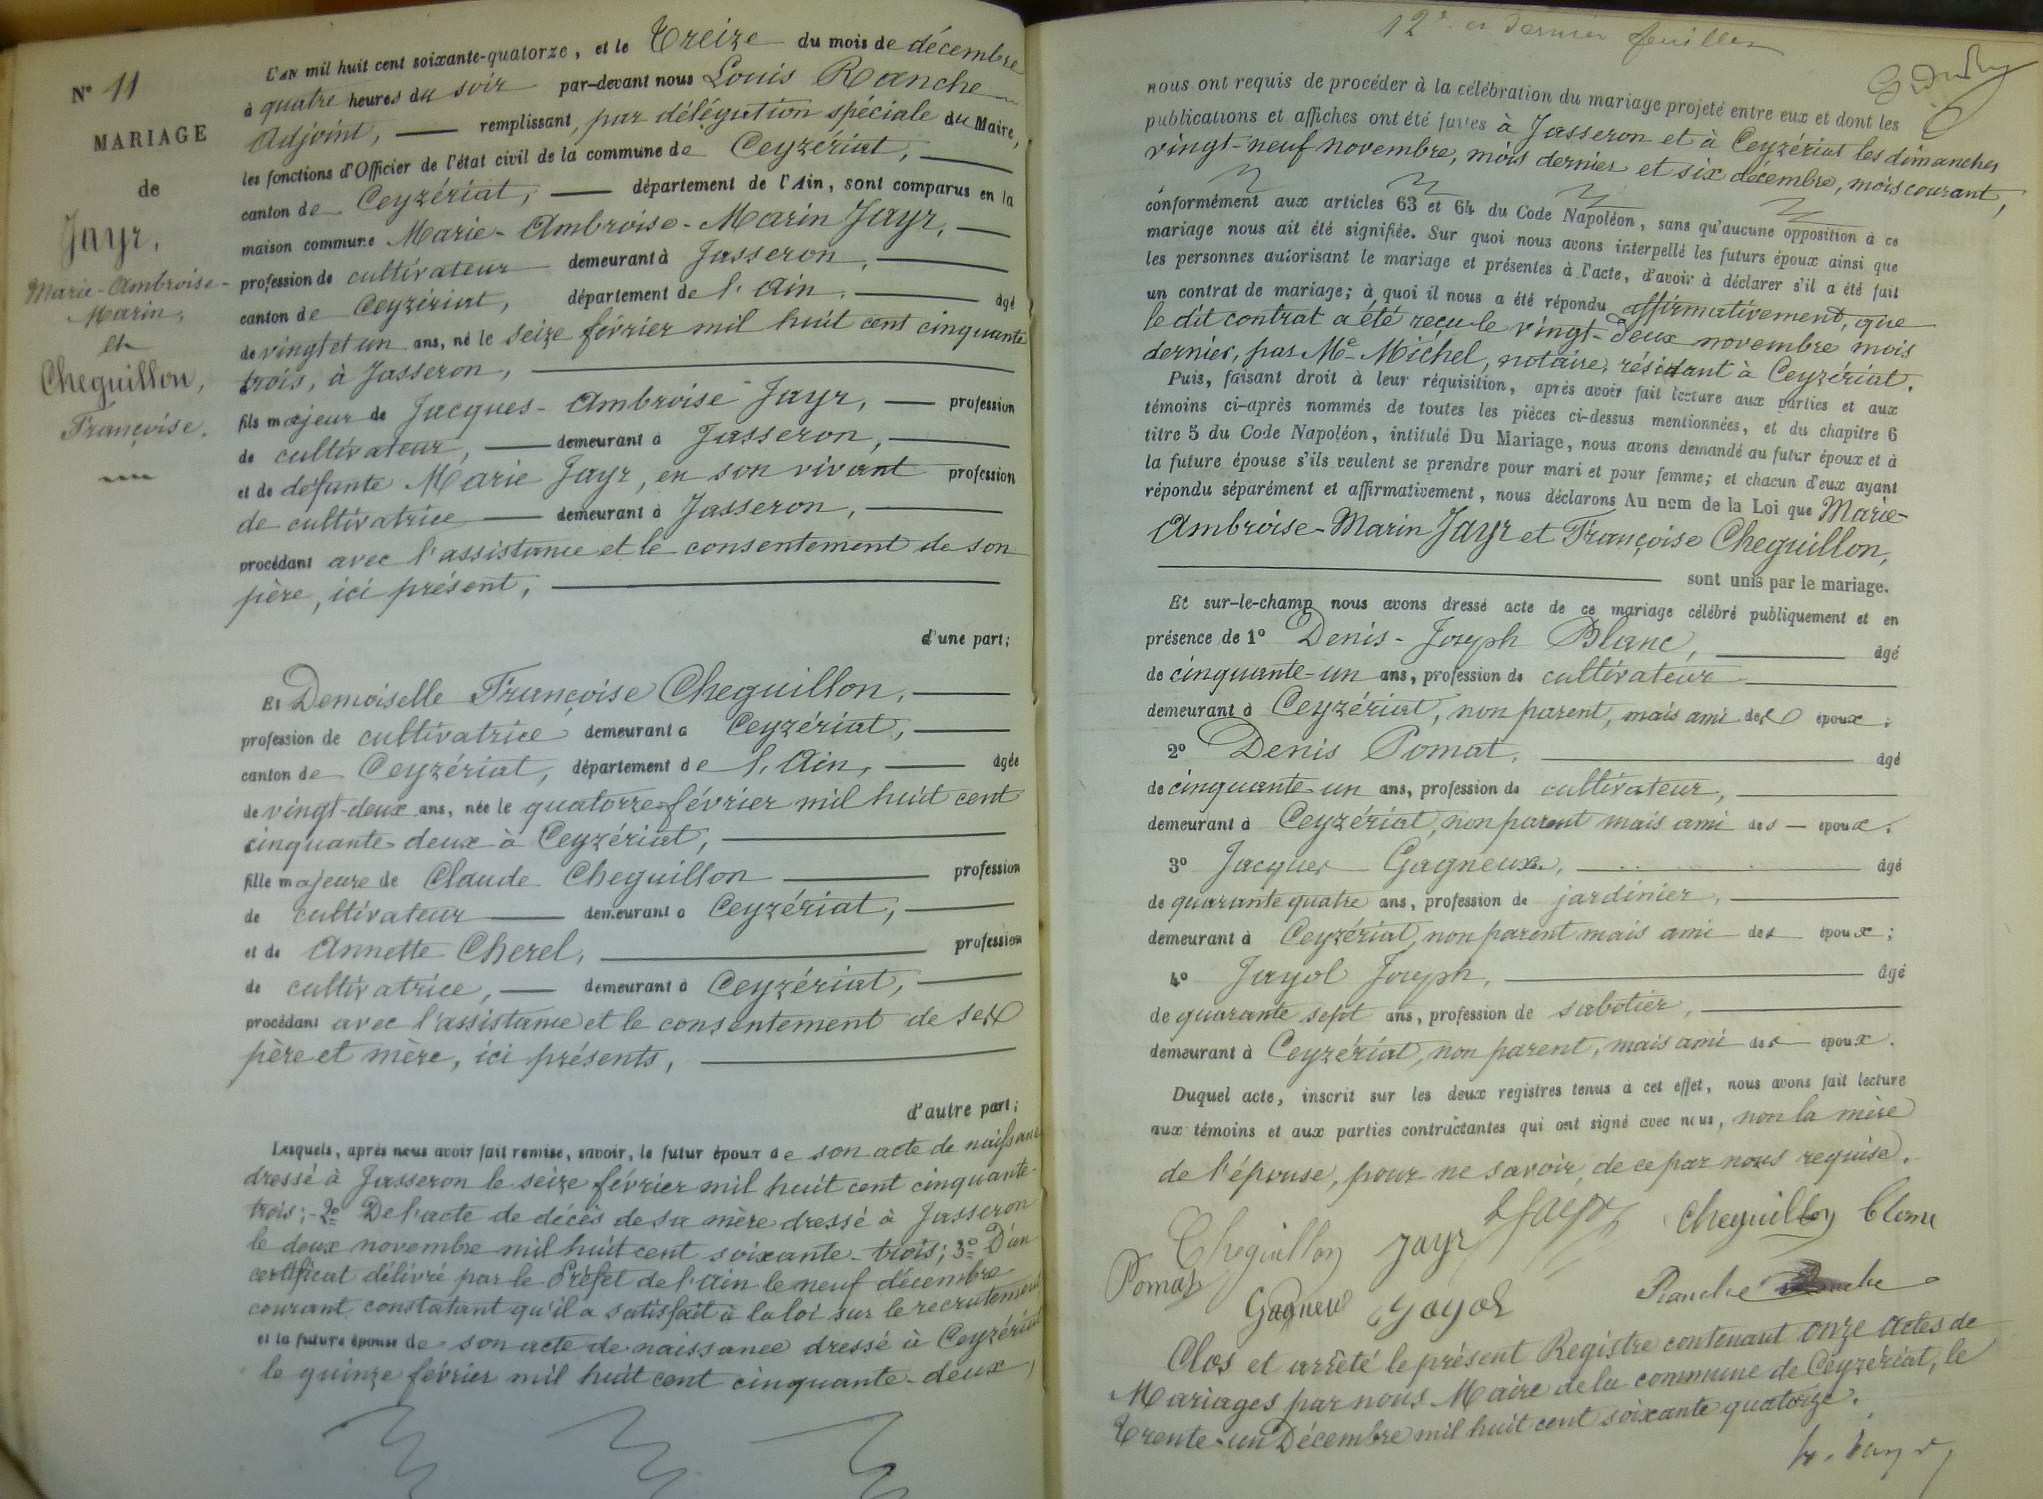 N° 11
MARIAGE
de
Jayr,
Marie-Ambroise-
Marin,
et
Cheguillon,
Françoise.
L'an mil huit cent soixante-quatorze, et le Treize du mois de décembre
à quatre heures du soir par-devant nous Louis Ranche
Adjoint, remplissant, par délégation spéciale du Maire,
les fonctions d'Officier de l'état civil de la commune de Ceyzériat,
canton de Ceyzériat, département de l'Ain, sont comparus en la
maison commune Marie-Ambroise-Marin Jayr,
profession de cultivateur demeurant à Jasseron,
canton de Ceyzériat, département de l'Ain. âgé
de vingt et un ans, né le seize février mil huit cent cinquante
trois, à Jasseron,
fils majeur de Jacques-Ambroise Jayr, profession
de cultivateur, demeurant à Jasseron,
et de défunte Marie Jayr, en son vivant profession
de cultivatrice demeurant à Jasseron,
procédant avec l'assistance et le consentement de son
père, ici présent,
d'une part;
Et Demoiselle Françoise Cheguillon,
profession de cultivatrice demeurant à Ceyzériat,
canton de Ceyzériat, département de l'Ain, âgée
de vingt-deux ans, née le quatorze février mil huit cent
cinquante-deux à Ceyzériat,
fille majeure de Claude Cheguillon profession
de cultivateur demeurant à Ceyzériat,
et de Annette Cherel, profession
de cultivatrice, demeurant à Ceyzériat,
procédant avec l'assistance et le consentement de ses
père et mère, ici présents,
d'autre part;
Lesquels, après nous avoir fait remise, savoir, le futur époux de son acte de naissance
dressé à Jasseron le seize février mil huit cent cinquante-
trois; 2° De l'acte de décès de sa mère dressé à Jasseron
le deux novembre mil huit cent soixante-trois; 3° D'un
certificat délivré par le Préfet de l'Ain le neuf décembre
courant constatant qu'il a satisfait à la loi sur le recrutement
et la future épouse de son acte de naissance dressé à Ceyzériat
le quinze février mil huit cent cinquante-deux,
12e et dernier feuillet
nous ont requis de procéder à la célébration du mariage projeté entre eux et dont les
publications et affiches ont été faites à Jasseron et à Ceyzériat les dimanches
vingt-neuf novembre, mois dernier et six décembre, mois courant,
conformément aux articles 63 et 64 du Code Napoléon, sans qu'aucune opposition à ce
mariage nous ait été signifiée. Sur quoi nous avons interpellé les futurs époux ainsi que
les personnes autorisant le mariage et présentes à l'acte, d'avoir à déclarer s'il a été fait
un contrat de mariage; à quoi il nous a été répondu affirmativement, que
le dit contrat a été reçu le vingt-deux novembre mois
dernier, par Me Michel, notaire, résidant à Ceyzériat.
Puis, faisant droit à leur réquisition, après avoir fait lecture aux parties et aux
témoins ci-après nommés de toutes les pièces ci-dessus mentionnées, et du chapitre 6
titre 5 du Code Napoléon, intitulé Du Mariage, nous avons demandé au futur époux et à
la future épouse s'ils veulent se prendre pour mari et pour femme; et chacun d'eux ayant
répondu séparément et affirmativement, nous déclarons Au nom de la Loi que Marie-
Ambroise-Marin Jayr et Françoise Cheguillon,
sont unis par le mariage.
Et sur-le-champ nous avons dressé acte de ce mariage célébré publiquement et en
présence de 1° Denis-Joseph Blanc, âgé
de cinquante-un ans, profession de cultivateur
demeurant à Ceyzériat, non parent, mais ami des époux;
2° Denis Pomat, âgé
de cinquante-un ans, profession de cultivateur,
demeurant à Ceyzériat, non parent mais ami des époux.
3° Jacques Gagneux, âgé
de quarante quatre ans, profession de jardinier,
demeurant à Ceyzériat, non parent mais ami des époux;
4° Jayol Joseph, âgé
de quarante sept ans, profession de sabotier,
demeurant à Ceyzériat, non parent, mais ami des époux.
Duquel acte, inscrit sur les deux registres tenus à cet effet, nous avons fait lecture
aux témoins et aux parties contractantes qui ont signé avec nous, non la mère
de l'épouse, pour ne savoir, de ce par nous requise.
Cheguillon Jayr Jayr Cheguillon Blanc
Pomat
Gagneux Jayol Ranche
Clos et arrêté le présent Registre contenant onze actes de
Mariages par nous Maire de la commune de Ceyzériat, le
Trente-un Décembre mil huit cent soixante quatorze.